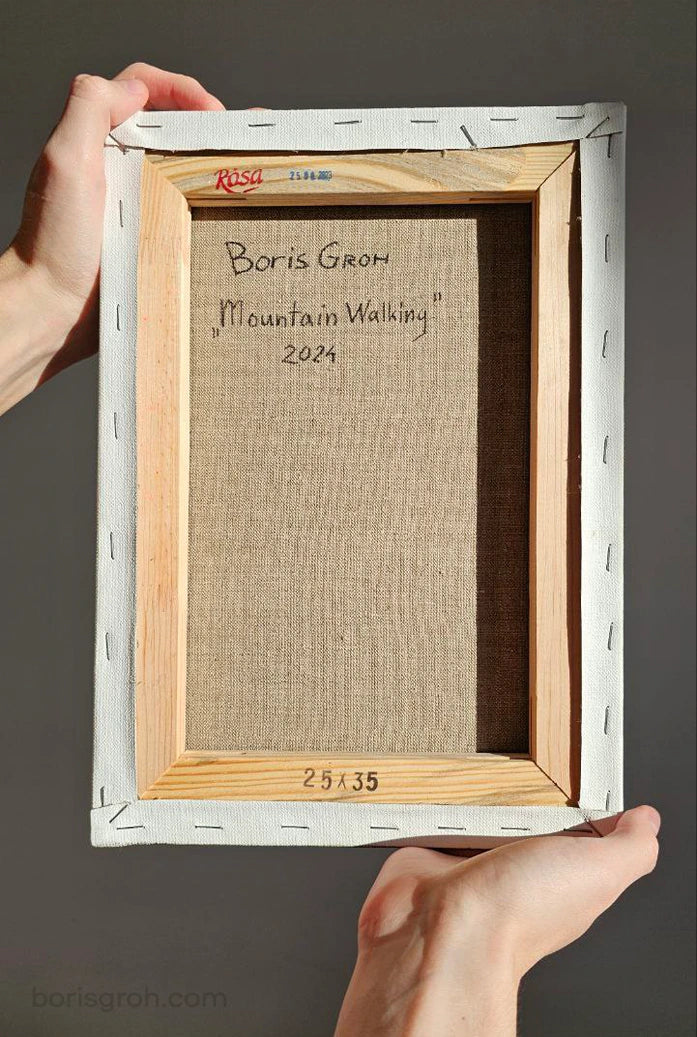 Rósa
Boris Groh
„Mountain Walking"
2024
25x35
borisgroh.com